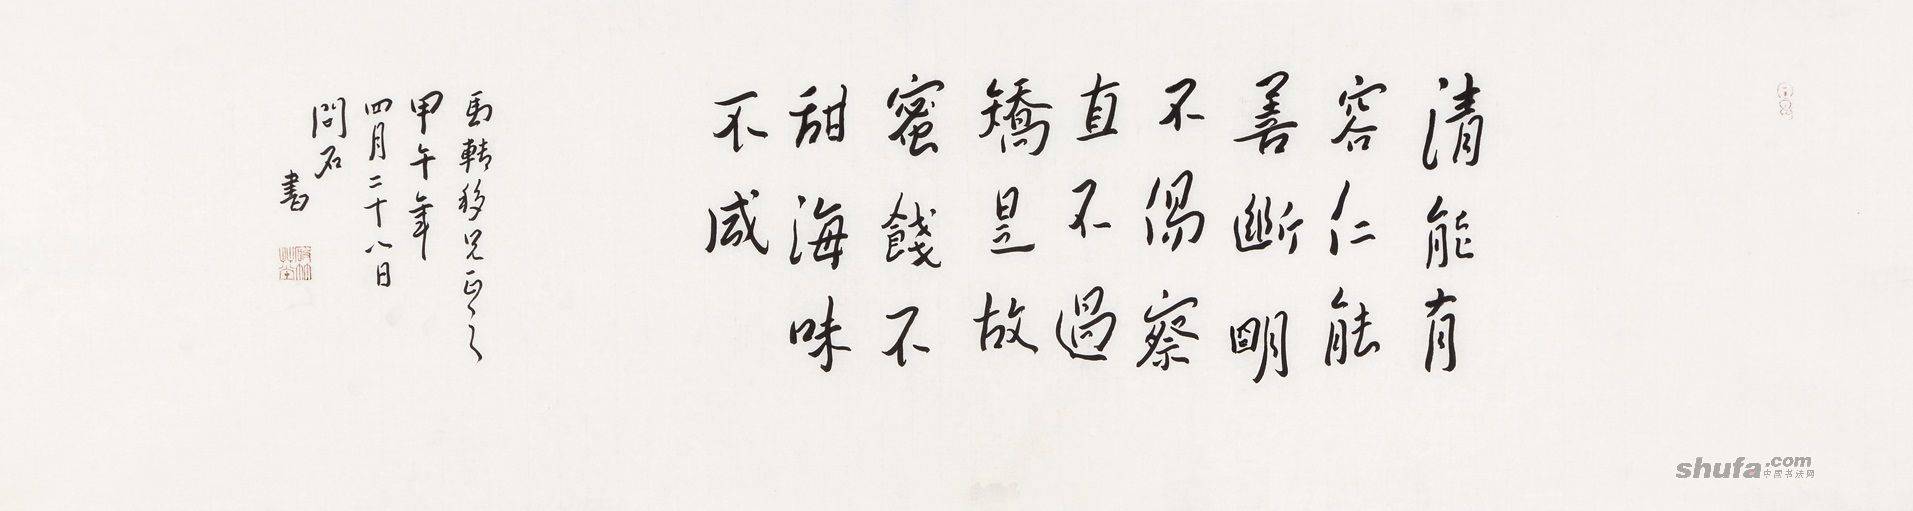 清能有
容仁能
善斷明
不傷察
直不過
矯是故
蜜餞不
甜海味
不咸
移兄正之
甲午年
四月二十八日
問石
書
shufa.com
中国书法网